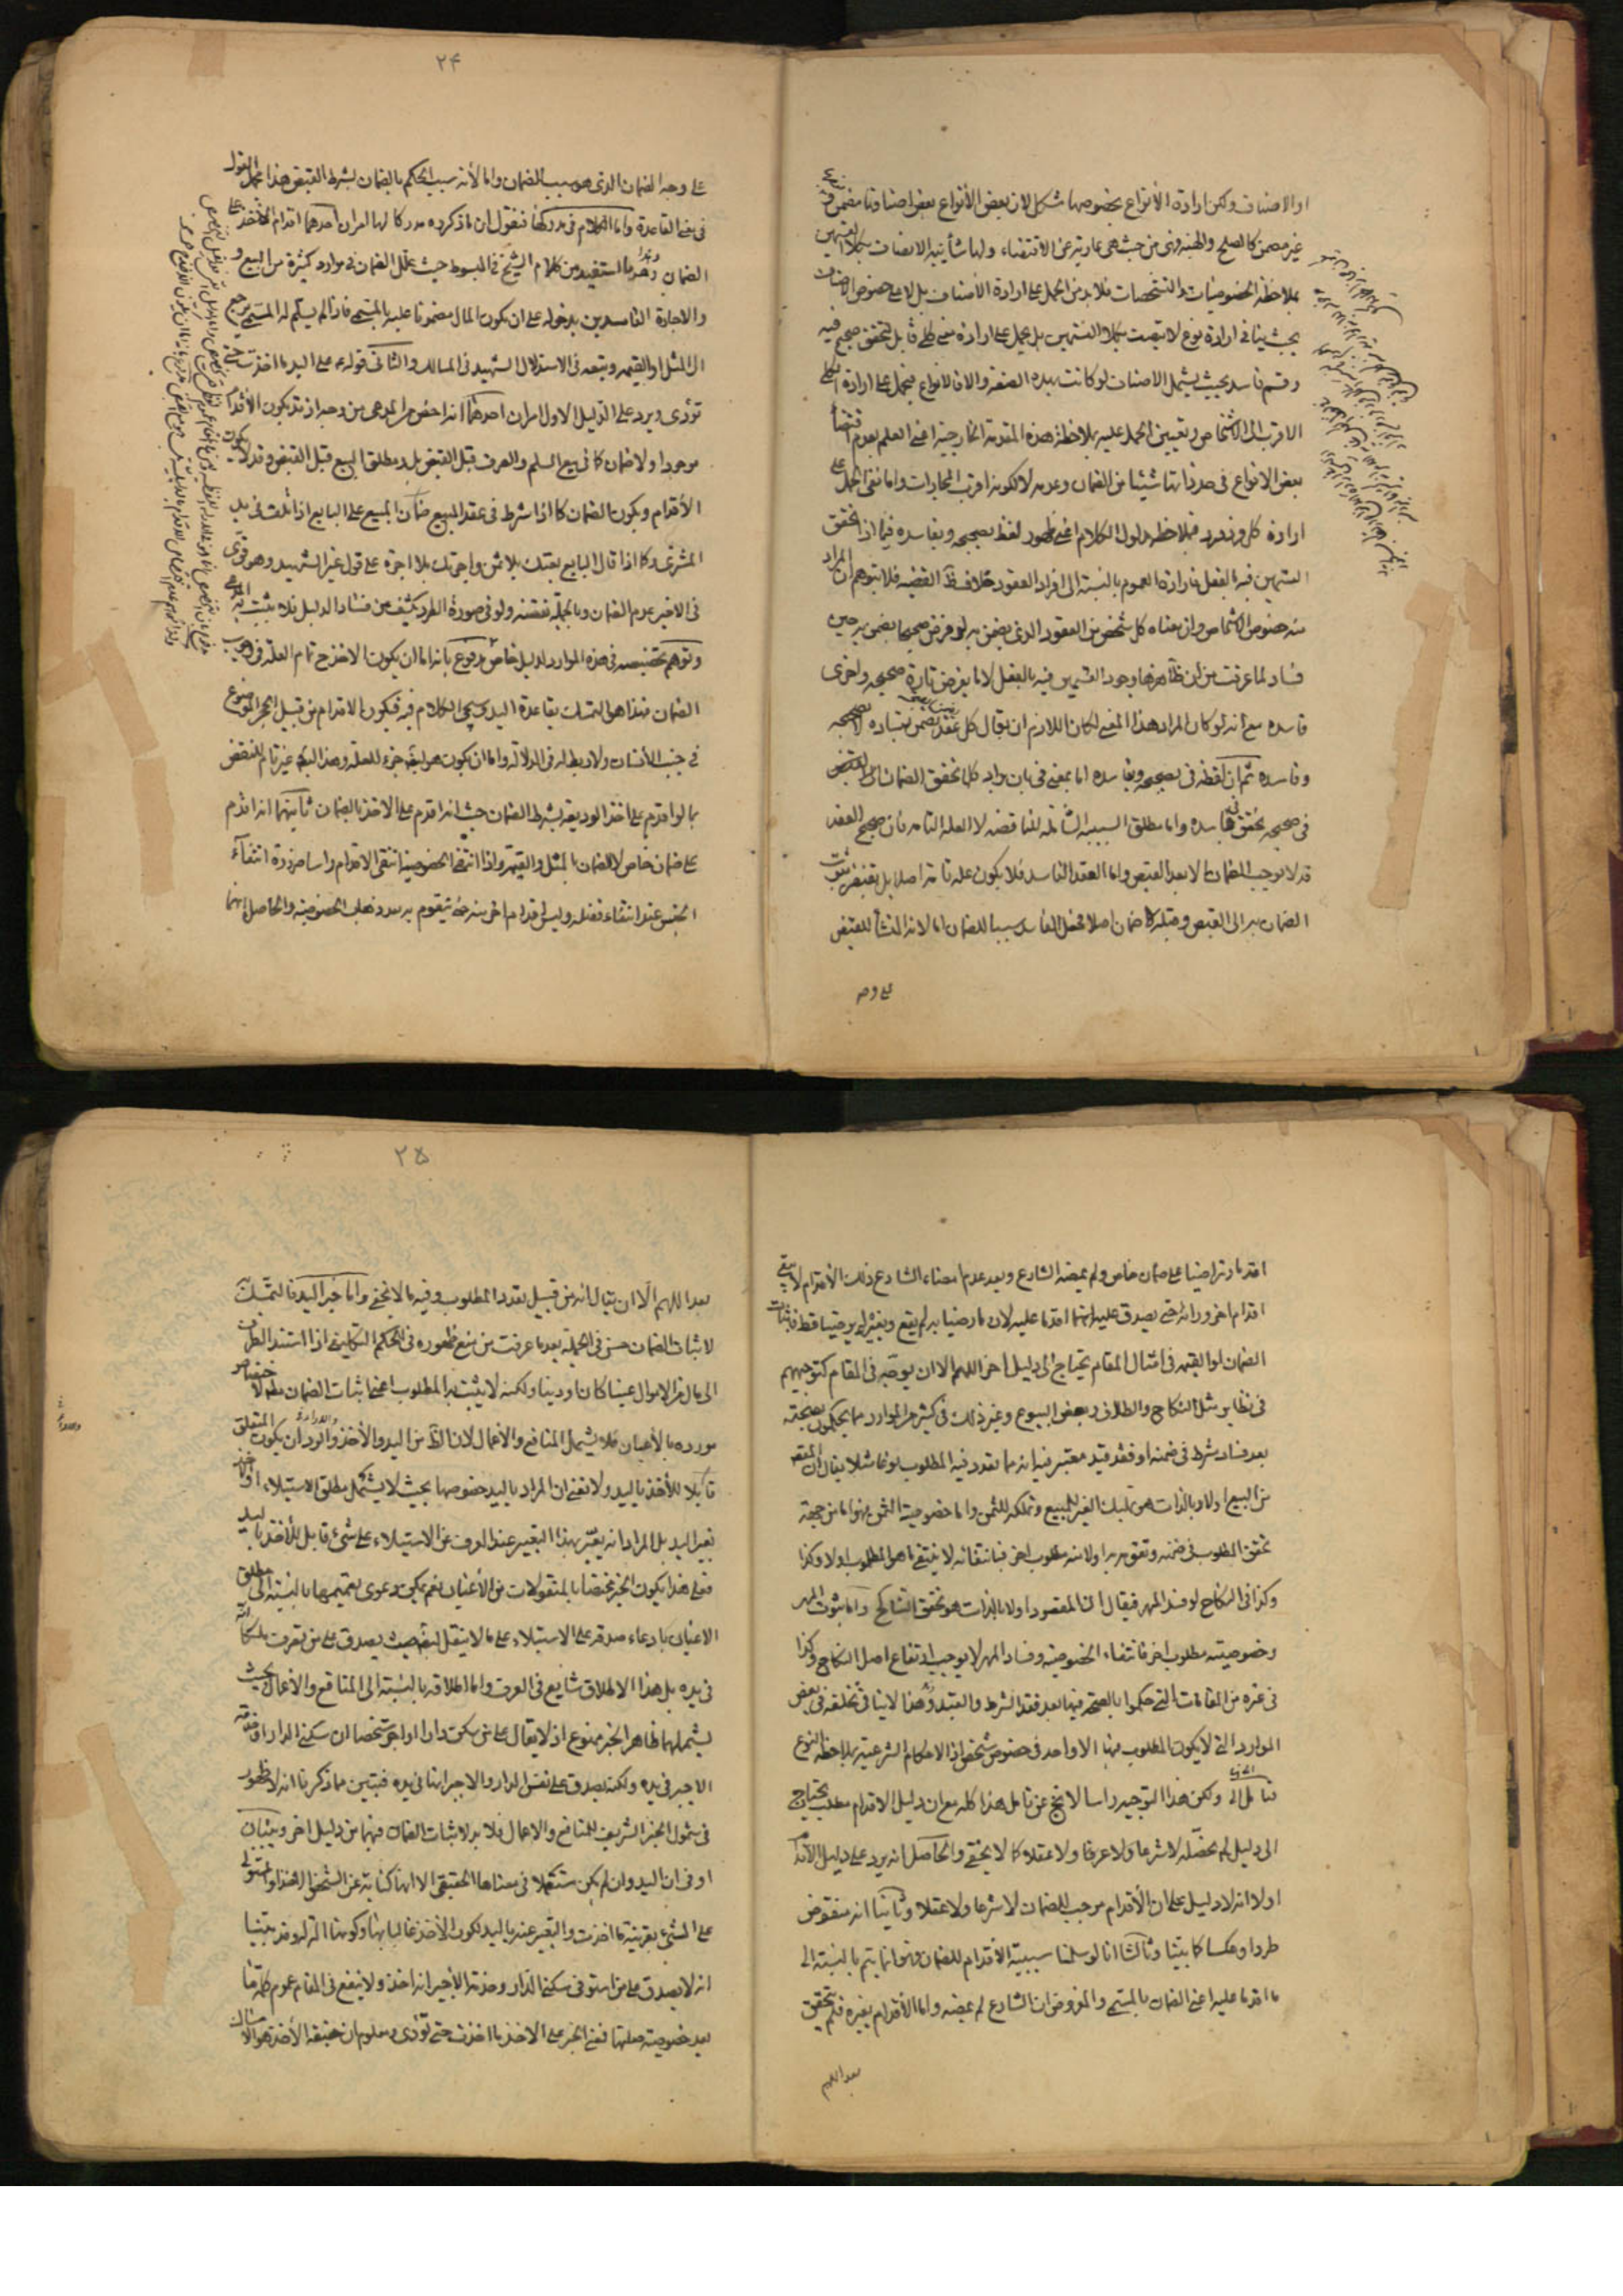 او الاصناف ولكن ارادة الأنواع بخصوصها مشكل لان بعض الأنواع بعض اصنافها مضمن
غير مضمن كالصلح والهبة وفي من حيث هي عارية عن الاقتضاء ولها شأنية الاتصاف بكلا القسمين
بملاحظة الخصوصيات والتشخصات فلا بد من الحمل على ارادة الأصناف بل لا على خصوص الاصناف
بحيث ينافي ارادة نوع لا يتصف بكلا القسمين بل يحمل على ارادة معنى كلي قابل لتحقق صحيح فيه
وقسم فاسد بحيث يشمل الاصناف لو كانت بهذه الصفة والا فالانواع فيحمل على ارادة الكلي
الاقرب الى الاشخاص وتعيين الحمل عليه بملاحظة هذه المقدمة الخارجية اعني العلم بعدم اقتضاء
بعض الانواع في حد ذاتها شيئا من الضمان وعدمه لا لكونه اقرب المجازات واما نفي الحمل على
ارادة كل فرد فرد فبملاحظة مدلول الكلام اعني ظهور لفظ بصحيحه وبفاسده فيما اذا تحقق
القسمين فيه بالفعل فارادة العموم بالنسبة الى افراد العقود خلاف ظ القضية فلا يتوهم ان المراد
منه خصوص الاشخاص وان معناه كل شخص من العقود الذي يضمن به لو فرض صحيحا يضمن به حين
فساده لما عرفت من ان ظاهرها وجود القسمين فيه بالفعل لا ما يفرض تارة صحيحه واخرى
فاسده مع انه لو كان المراد هذا المعنى لكان اللازم ان يقال كل عقد يضمن بفساده لا بصحيحه
وفاسده ثم ان لفظة في بصحيحه وبفاسده اما بمعنى في بان يراد كلما تحقق الضمان بالقبض
في صحيحه تحقق في فاسده واما مطلق السببية الشاملة للناقصة لا العلة التامة فان صحيح العقد
قد لا يوجب الضمان الا بعد القبض واما العقد الفاسد فلا يكون علة تامة اصلا بل يفتقر ثبوت
الضمان به الى القبض وقبله لا ضمان اصلا فجعل الفاسد سببا للضمان اما لانه المنشأ للقبض
على وجه
٢۴
على وجه الضمان الذي هو سبب الضمان واما لأنه سبب الحكم بالضمان بشرط القبض هذا مجمل القول
في معنى القاعدة واما الكلام في مدركها فنقول ان ما ذكروه مدركا لها امران احدهما اقدام الآخذ على
الضمان وهذا ما استفيد من كلام الشيخ في المبسوط حيث علل الضمان في موارد كثيرة من البيع و
والاجارة الفاسدين بدخوله على ان يكون المال مضمونا عليه بالمسمى فاذا لم يسلم له المسمى رجع
الى المثل او القيمة وتبعه في الاستدلال الشهيد في المسالك والثاني قوله ع على اليد ما اخذت حتى
تؤدى ويرد على الدليل الاول امران احدهما انه اخص من المدعى من وجه اذ قد يكون الأقدام
موجودا ولا ضمان كما في بيع السلم والصرف قبل القبض بل مطلق البيع قبل القبض وقد لا يكون
الأقدام ويكون الضمان كما اذا شرط في عقد المبيع ضمان المبيع على البايع اذا تلف في يد
المشتري وكما اذا قال البايع بعتك بلا ثمن واجرتك بلا اجرة على قول غير الشهيد وهو قوى
في الاخير عدم الضمان وبالجملة نقضه ولو في صورة الطرد يكشف عن فساد الدليل فلا يثبت به المدعى
وتوهم تخصيصه في هذه الموارد لدليل خاص مدفوع بانه اما ان يكون الاخذ ح تمام العلة في
الضمان فهذا هو التمسك بقاعدة اليد وسيجيء الكلام فيه فيكون الاقدام من قبيل الحجر الموضوع
في جنب الأنسان ولا دخل له في الدلالة واما ان يكون هو ايضا جزء للعلة وهذا ايضا غير تام للنقض
بما لو اقدم على اخذ الوديعة بشرط الضمان حيث انه اقدم على الاخذ بالضمان ثانيهما انه اقدم
على ضمان خاص لا الضمان بالمثل والقيمة واذا انتفى الخصوصية انتفى الاقدام راسا ضرورة انتفاء
الجنس عند انتفاء فصله وليس اقدام اخر منه حتى يتقوم به بعد ذهاب الخصوصية والحاصل انهما
اقدما وتراضيا على ضمان خاص ولم يمضه الشارع وبعد عدم امضاء الشارع ذلك الأقدام لا يبقى
اقدام اخر وراءه حتى يصدق عليه انهما اقدما عليه لان ما رضيا به لم يقع وبغيره لم يرضيا قط فاثبات
الضمان او القيمة في امثال المقام يحتاج الى دليل اخر اللهم الا ان يوجه في المقام كتوجيههم
في نظاير مثل النكاح والطلاق وبعض البيوع وغير ذلك في كثير من الموارد مما يحكمون بصحته
بعد فساد شرط في ضمنه او فقد قيد معتبر فيه انه مما تعدد فيه المطلوب نوعا مثلا يقال ان المقصود
من البيع اولا وبالذات هو تمليك الغير للمبيع وتملكه للثمن واما خصوصية الثمن فهو اما من جهة
تحقق المطلوب في ضمنه وتقومه به اولا منه مطلوب اخر فبانتفائه لا ينتفي ما هو المطلوب اولا وكذا
وكذا في النكاح لو فسد المهر فيقال ان المقصود اولا وبالذات هو تحقق التناكح واما ثبوت المهر
وخصوصيته مطلوب اخر فانتفاء الخصوصية وفساد المهر لا يوجب ارتفاع اصل النكاح وكذا
في غيره من المقامات التي حكموا بالصحة فيها بعد فقد الشرط والقيد وهذا لا ينافي تخلفه في بعض
الموارد التي لا يكون المطلوب منها الا واحد في خصوص شخص اذ الاحكام الشرعية بملاحظة النوع
ولكن هذا التوجيه راسا لا يخ عن تامل هذا كله مع ان دليل الاقدام مطلب يحتاج
الى دليل لم نحصله لا شرعا ولا عرفا ولا عقلا كما لا يخفى والحاصل انه يرد على دليل الأقدام
اولا انه لا دليل على ان الأقدام موجب للضمان لا شرعا ولا عقلا وثانيا انه منقوض
طردا وعكسا كما بيّنا وثالثا انا لو سلمنا سببية الاقدام للضمان فهو انما يتم بالنسبة الى
ما اقدما عليه اعني الضمان بالمسمى والمفروض ان الشارع لم يمضه واما الأقدام بغيره فلم يتحقق
بعد اللهم
٢۵
بعد اللهم الا ان يقال انه من قبيل تعدد المطلوب وفيه ما لا يخفى واما خبر اليد فالتمسك
لاثبات الضمان حسن في الجملة بعد ما عرفت من منع ظهوره في الحكم التكليفي اذا استند الظرف
الى مال من الاموال عينا كان او دينا ولكنه لا يثبت به المطلوب اعني اثبات الضمان مطلقا لاختصاص
مورده بالأعيان فلا يشمل المنافع والأعمال لان الظ من اليد والأخذ والرد ان يكون المتعلق
قابلا للأخذ باليد ولا نعني ان المراد باليد خصوصها بحيث لا يشمل مطلق الاستيلاء او
بغير اليد بل المراد انه يعبر بهذا التعبير عند العرف عن الاستيلاء على شيء قابل للأخذ باليد
فعلى هذا يكون الخبر مختصا بالمنقولات من الأعيان نعم يمكن دعوى تعميمها بالنسبة الى مطلق
الاعيان بادعاء صدقه على الاستيلاء على ما لا ينقل ايضا حيث يصدق على من تصرف ملكا انه
في يده بل هذا الاطلاق شايع في العرف واما اطلاقه بالنسبة الى المنافع والأعمال بحيث
يشملهما ظاهر الخبر ممنوع اذ لا يقال على من سكن دارا او اجر شخصا ان سكنى الدار او منفعة
الاجير في يده ولكنه يصدق على نفس الدار والاجير انها في يده فتبين مما ذكرنا انه لا ظهور
في شمول الخبر الشريف للمنافع والاعمال فلا بد لاثبات الضمان فيهما من دليل اخر وبيان
اوفى ان اليد وان لم يكن مستعملا في معناها الحقيقي الا انها كناية عن الشخص الاخذ او المستولي
على الشيء بقرينة ما اخذت والتعبير عنه باليد لكون الأخذ غالبا بها وكونها الة له وقد بيّنا
انه لا يصدق على من استوفى سكنى الدار وخدمة الأجير انه اخذه ولا ينفع في المقام عموم كلمة ما
بعد خصوصية صلتها فمعنى الخبر على الاخذ ما اخذت حتى تؤدى ومعلوم ان حقيقة الأخذ هو الامساك